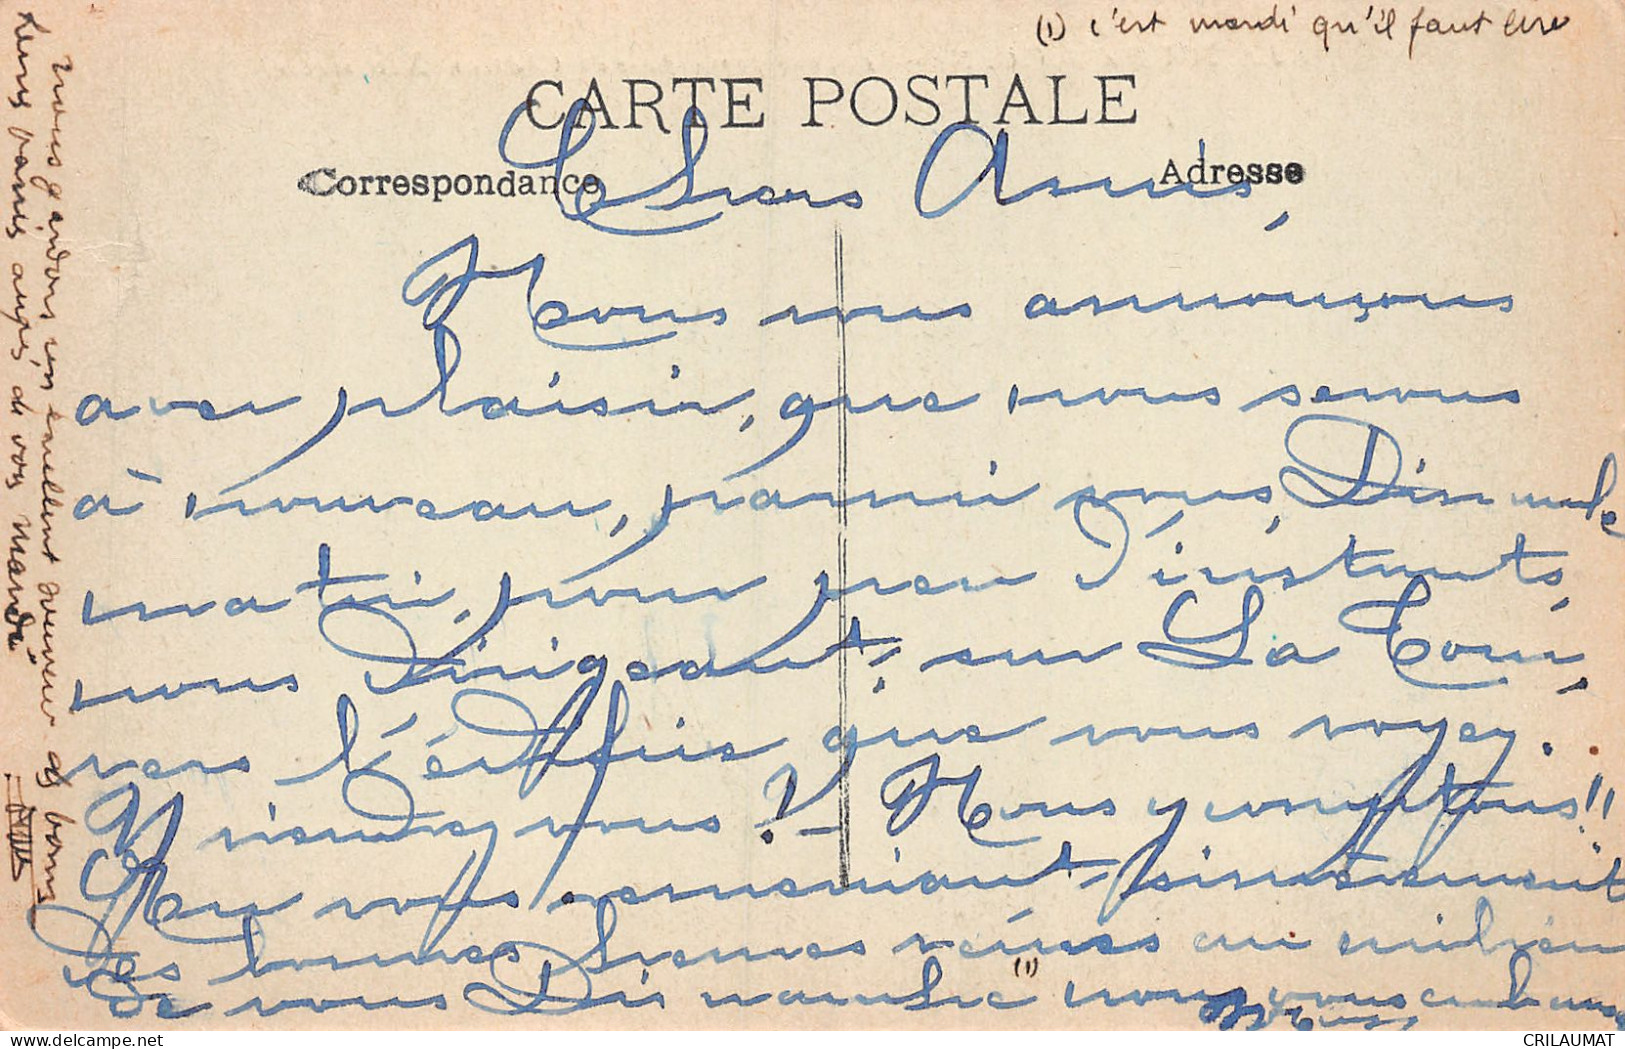 (1) c'est mardi qu'il faut lire
CARTE POSTALE
Correspondance
Adresse
Chers Amis,
Nous vous annonçons
avec plaisir, que nous serons
à nouveau, parmi vous, Dimanche
matin, pour peu d'instants,
nous dirigeant, sur La Cour,
vers l'édifice que vous voyez.
Viendrez vous ?- Nous y comptons!!
En vous remerciant, sincèrement
des bonnes heures vécues au milieu
de vous Dimanche (1) nous vous embrassons
nous gardons un excellent souvenir des bons
passés auprès de vous mardi"
CRILAUMAT